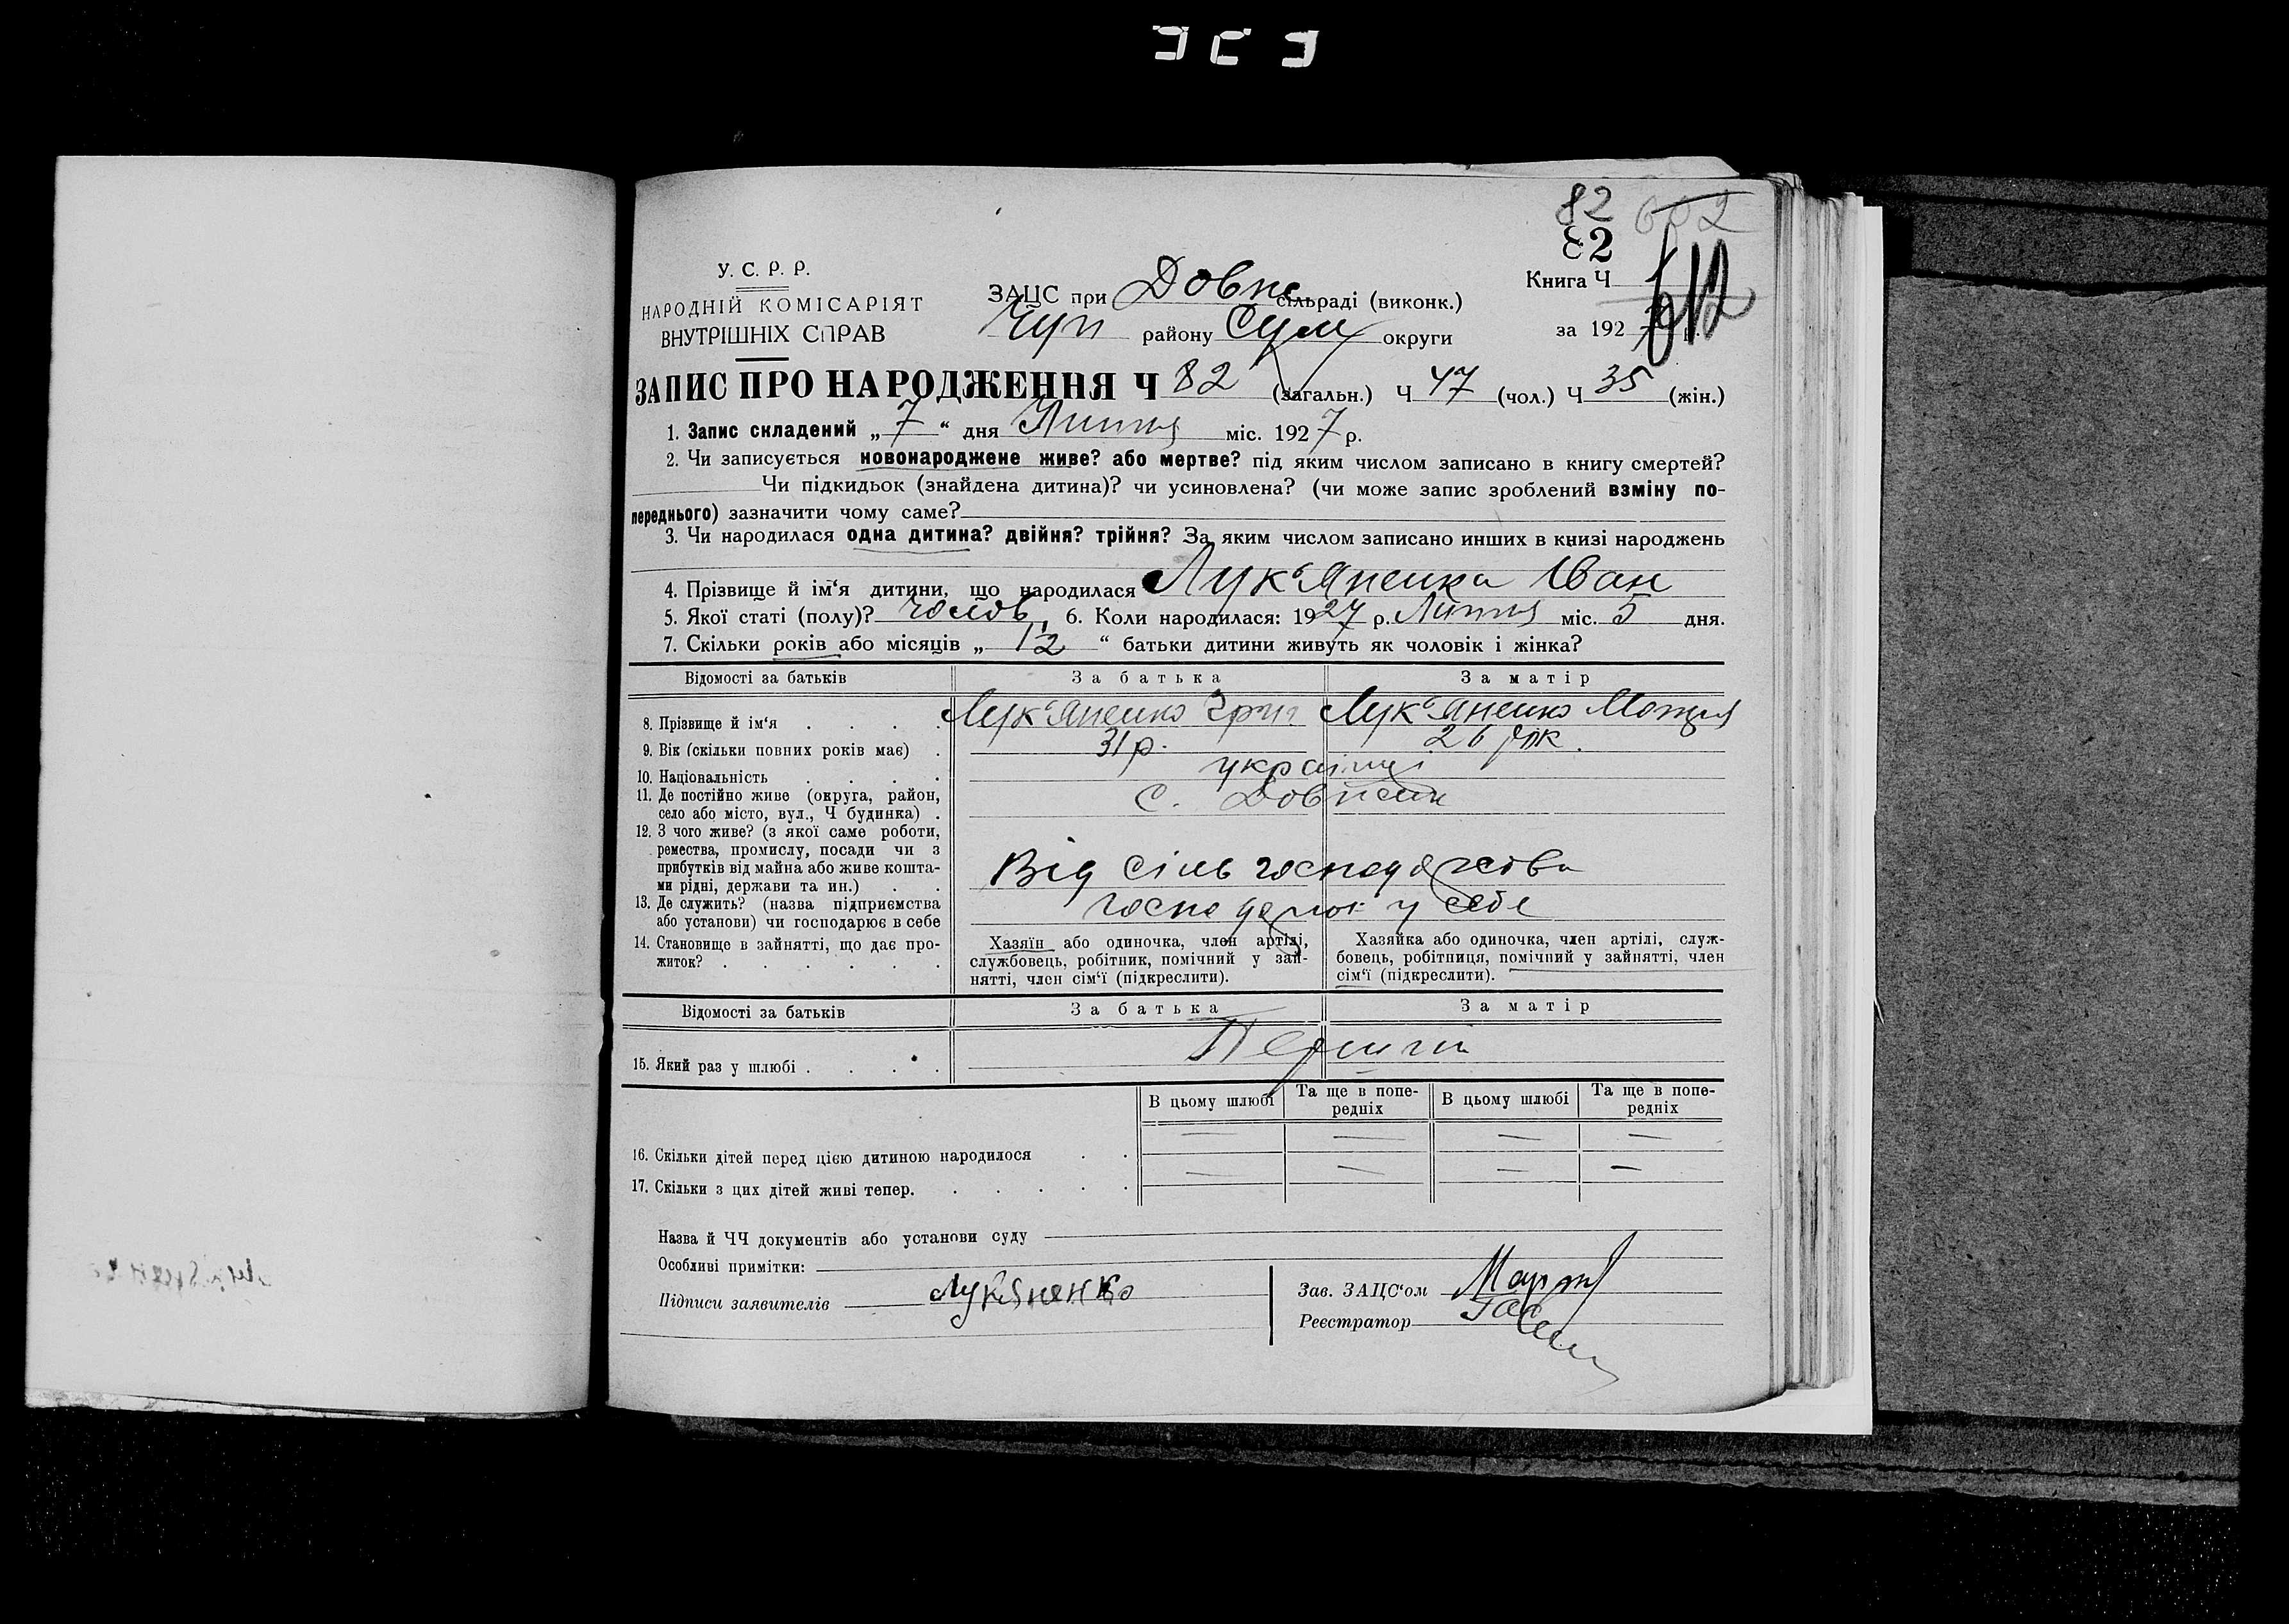 82
82
У. С. Р. Р.
НАРОДНІЙ КОМІСАРІЯТ
ВНУТРІШНІХ СПРАВ
Книга Ч
612
ЗАЦС при Довж сільраді (виконк.)
Чуп району Сум округи
за 1927 р.
ЗАПИС ПРО НАРОДЖЕННЯ Ч 82 (загальн.) Ч 47 (чол.) Ч 35 (жін.)
1. Запис складений „ 7 “ дня Липня міс. 1927 р.
2. Чи записується новонароджене живе? або мертве? під яким числом записано в книгу смертей?
Чи підкидьок (знайдена дитина)? чи усиновлена? (чи може запис зроблений взміну по-
переднього) зазначити чому саме?
3. Чи народилася одна дитина? двійня? трійня? За яким числом записано инших в книзі народжень
4. Прізвище й ім‘я дитини, що народилася Лук‘яненка Іван
5. Якої статі (полу)? чолов. 6. Коли народилася: 1927 р. Липня міс. 5 дня.
7. Скільки років або місяців „ 1½ “ батьки дитини живуть як чоловік і жінка?
Відомості за батьків За батька За матір
8. Прізвище й ім‘я Лук‘яненко Григ Лук‘яненко Мотря
9. Вік (скільки повних років має) 31 р. 26 рок.
10. Національність українці
11. Де постійно живе (округа, район,
село або місто, вул., Ч будинка) с.
12. З чого живе? (з якої саме роботи,
ремества, промислу, посади чи з
прибутків від майна або живе кошта-
ми рідні, держави та ин.) Від сіль господарства
13. Де служить? (назва підприємства
або установи) чи господарює в себе у себе
14. Становище в зайнятті, що дає про-
житок?
Хазяїн або одиночка, член артілі,
службовець, робітник, помічний у зай-
нятті, член сім‘ї (підкреслити).
Хазяйка або одиночка, член артілі, служ-
бовець, робітниця, помічний у зайнятті, член
сім‘ї (підкреслити).
Відомості за батьків За батька За матір
15. Який раз у шлюбі Перший
В цьому шлюбі Та ще в попе-
редніх В цьому шлюбі Та ще в попе-
редніх
16. Скільки дітей перед цією дитиною народилося — — — —
17. Скільки з цих дітей живі тепер. — — — —
Назва й ЧЧ документів або установи суду
Особливі примітки:
Підписи заявителів Лукяненко
Зав. ЗАЦС‘ом
Реєстратор